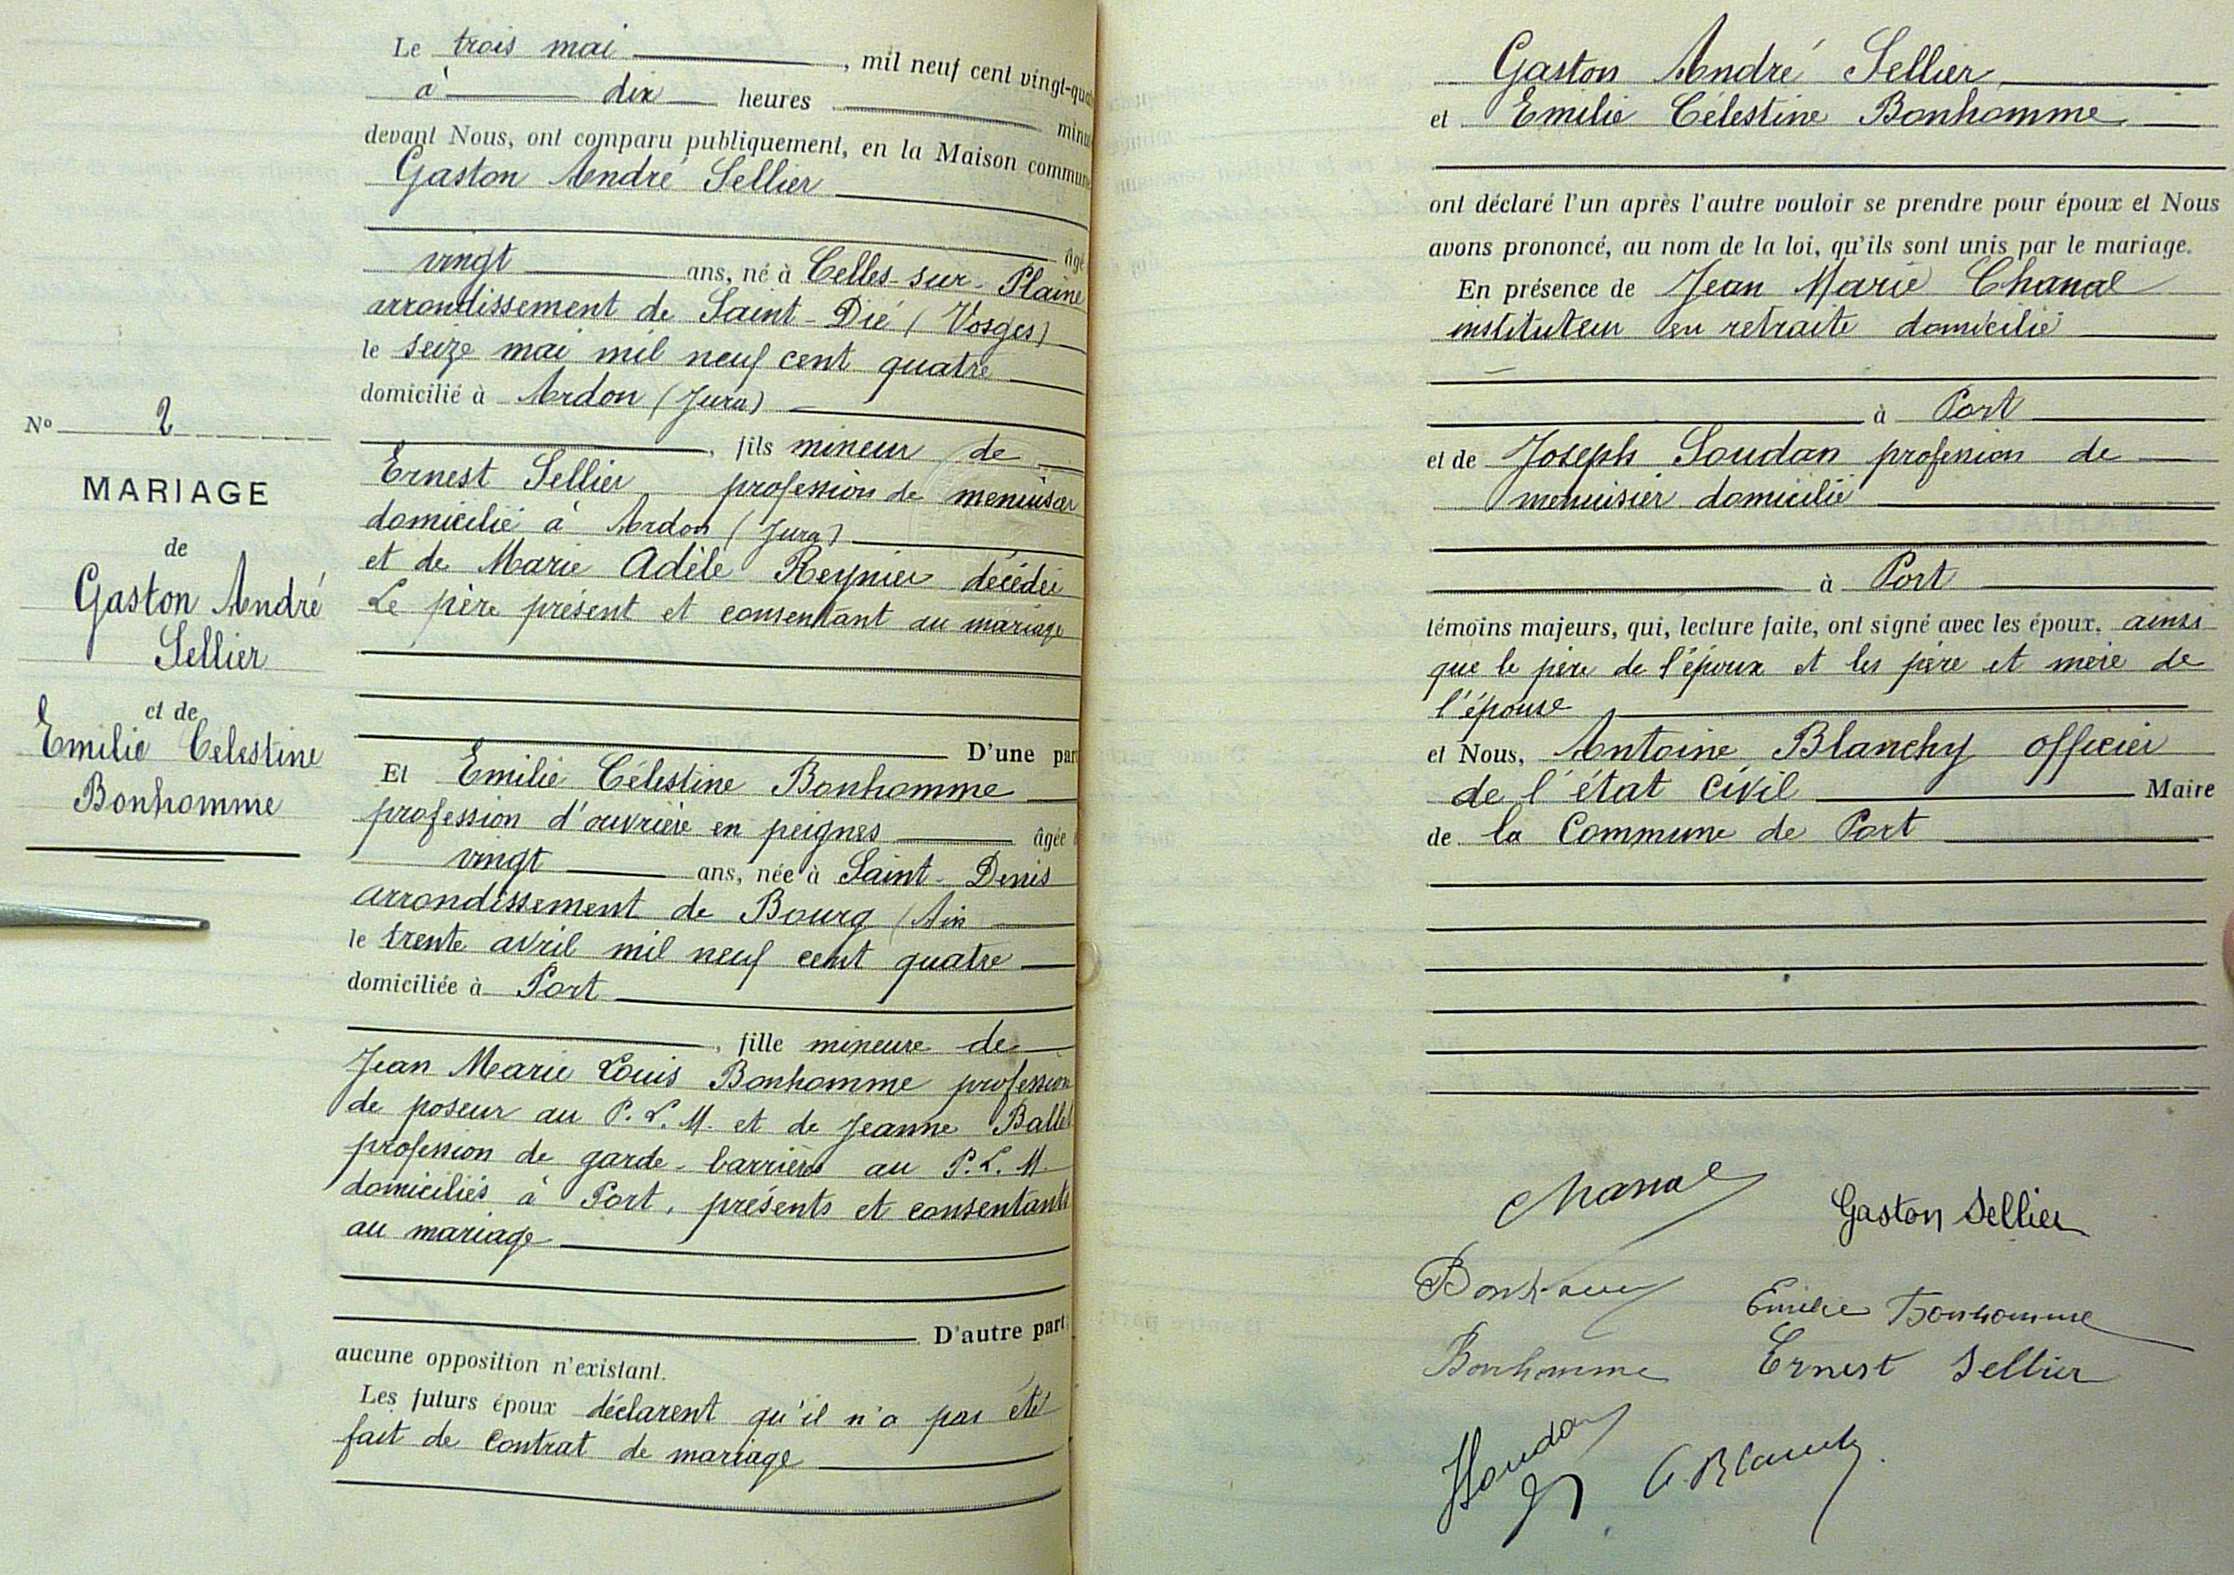 Le trois mai, mil neuf cent vingt-quat
à dix heures minu
devant Nous, ont comparu publiquement, en la Maison commune
Gaston André Sellier
âgé
vingt ans, né à Celles-sur-Plaine
arrondissement de Saint-Dié (Vosges)
le seize mai mil neuf cent quatre
domicilié à Ardon (Jura)
, fils mineur de
Ernest Sellier profession de menuisier
domicilié à Ardon (Jura)
et de Marie Adèle Reynier décédée
Le père présent et consentant au mariage
D'une part
Et Emilie Célestine Bonhomme
profession d'ouvrière en peignes âgée
vingt ans, née à Saint-Denis
arrondissement de Bourg (Ain
le trente avril mil neuf cent quatre
domiciliée à Port
, fille mineure de
Jean Marie Louis Bonhomme profession
de poseur au P.L.M. et de Jeanne Ballet
profession de garde-barrière au P.L.M.
domiciliés à Port, présents et consentants
au mariage
D'autre part
aucune opposition n'existant.
Les futurs époux déclarent qu'il n'a pas été
fait de contrat de mariage
No 2
MARIAGE
de
Gaston André
Sellier
et de
Emilie Celestine
Bonhomme
Gaston André Sellier
et Emilie Célestine Bonhomme
ont déclaré l'un après l'autre vouloir se prendre pour époux et Nous
avons prononcé, au nom de la loi, qu'ils sont unis par le mariage.
En présence de Jean Marie Chanal
instituteur en retraite domicilié
à Port
et de Joseph Soudan profession de
menuisier domicilié
à Port
témoins majeurs, qui, lecture faite, ont signé avec les époux, ainsi
que le père de l'époux et les père et mère de
l'épouse
et Nous, Antoine Blanchy officier
de l'état civil Maire
de la Commune de Port
Chanal
Gaston Sellier
Emilie Bonhomme
Bonhomme
Ernest Sellier
JSoudan
A. Blanchy